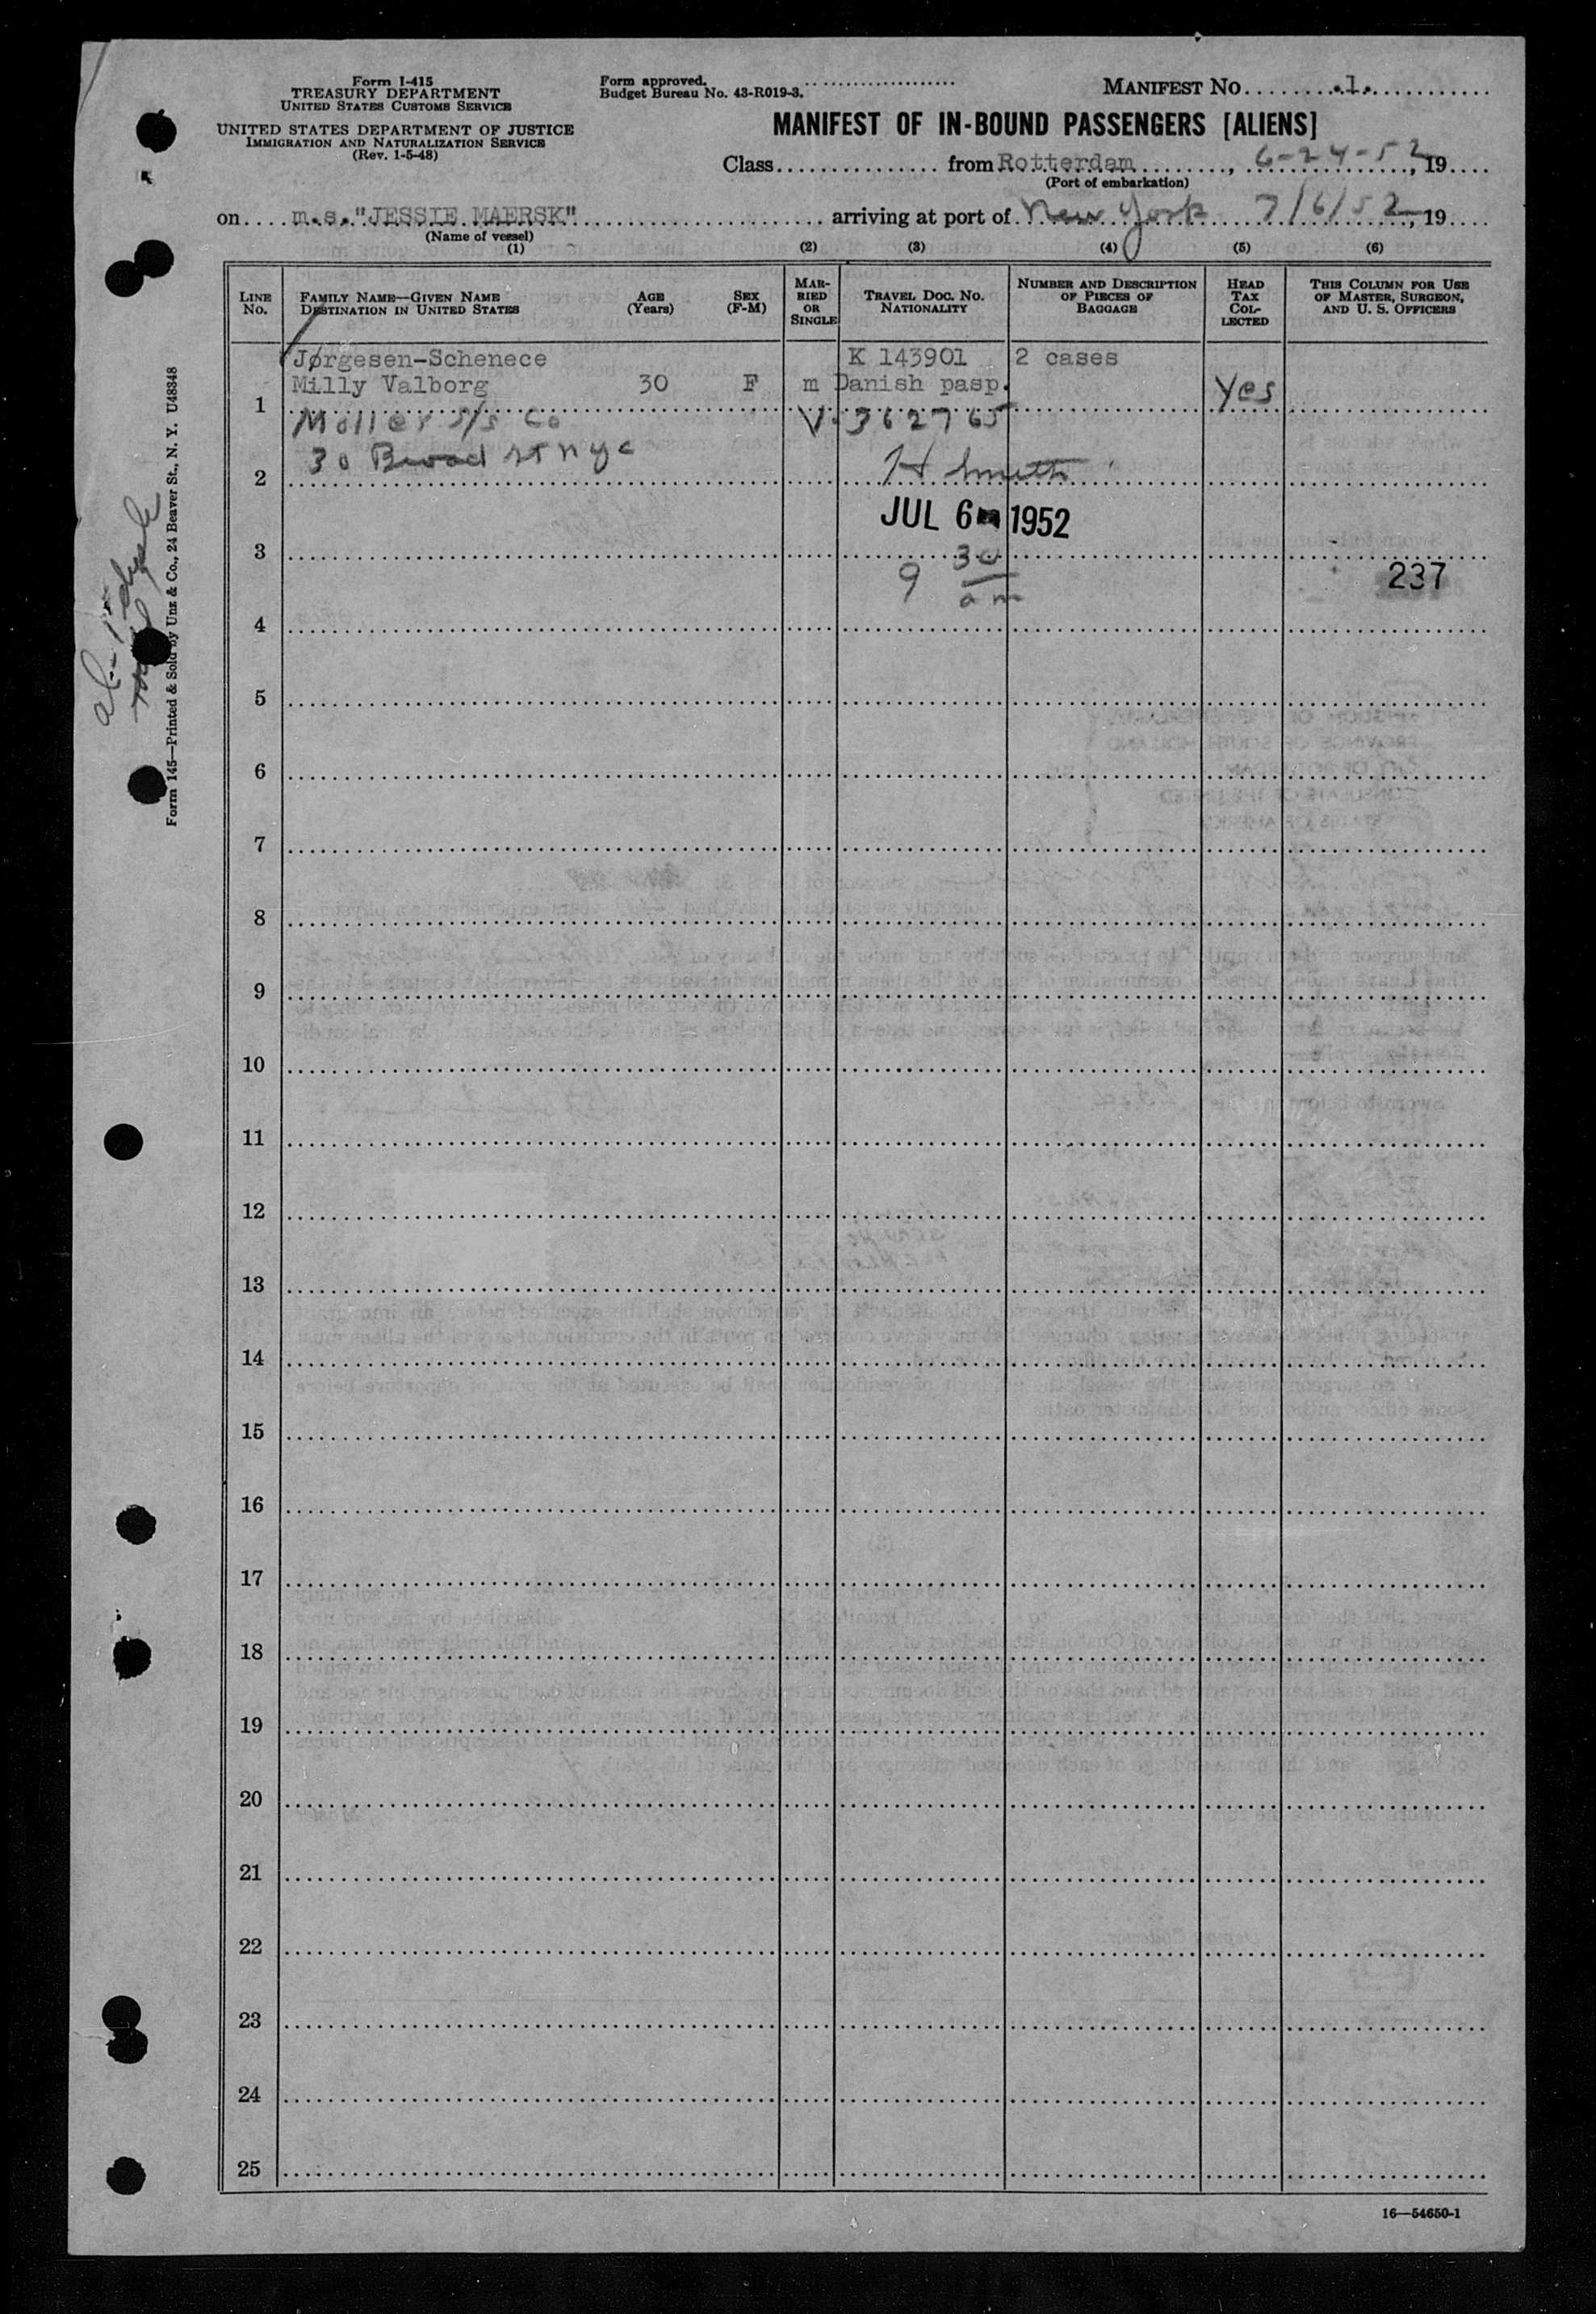 Form I-415
TREASURY DEPARTMENT
UNITED STATES CUSTOMS SERVICE
UNITED STATES DEPARTMENT OF JUSTICE
IMMIGRATION AND NATURALIZATION SERVICE
(Rev. 1-5-48)
Form approved.
Budget Bureau No. 43-R019-3.
MANIFEST NO. 1.
MANIFEST OF IN-BOUND PASSENGERS [ALIENS]
Class from Rotterdam, 6-24-52, 19
(Port of embarkation)
on m.s. "JESSIE MAERSK" arriving at port of New York 7/6/52, 19
(Name of vessel)
(1) (2) (3) (4) (5) (6)
LINE NO.
FAMILY NAME—GIVEN NAME
DESTINATION IN UNITED STATES
AGE (Years)
SEX (F-M)
MARRIED OR SINGLE
TRAVEL DOC. NO.
NATIONALITY
NUMBER AND DESCRIPTION OF PIECES OF BAGGAGE
HEAD TAX COLLECTED
THIS COLUMN FOR USE OF MASTER, SURGEON, AND U. S. OFFICERS
Jørgesen-Schenece K 143901 2 cases
Milly Valborg 30 F m Danish pasp. Yes
1
Moller S/S Co V. 362765
30 Broad St NYC
2 H Smith
JUL 6 1952
3
9 30 am
237
4
5
6
7
8
9
10
11
12
13
14
15
16
17
18
19
20
21
22
23
24
25
Form 145—Printed & Sold by Unz & Co., 24 Beaver St., N. Y. U48348
16—54650-1